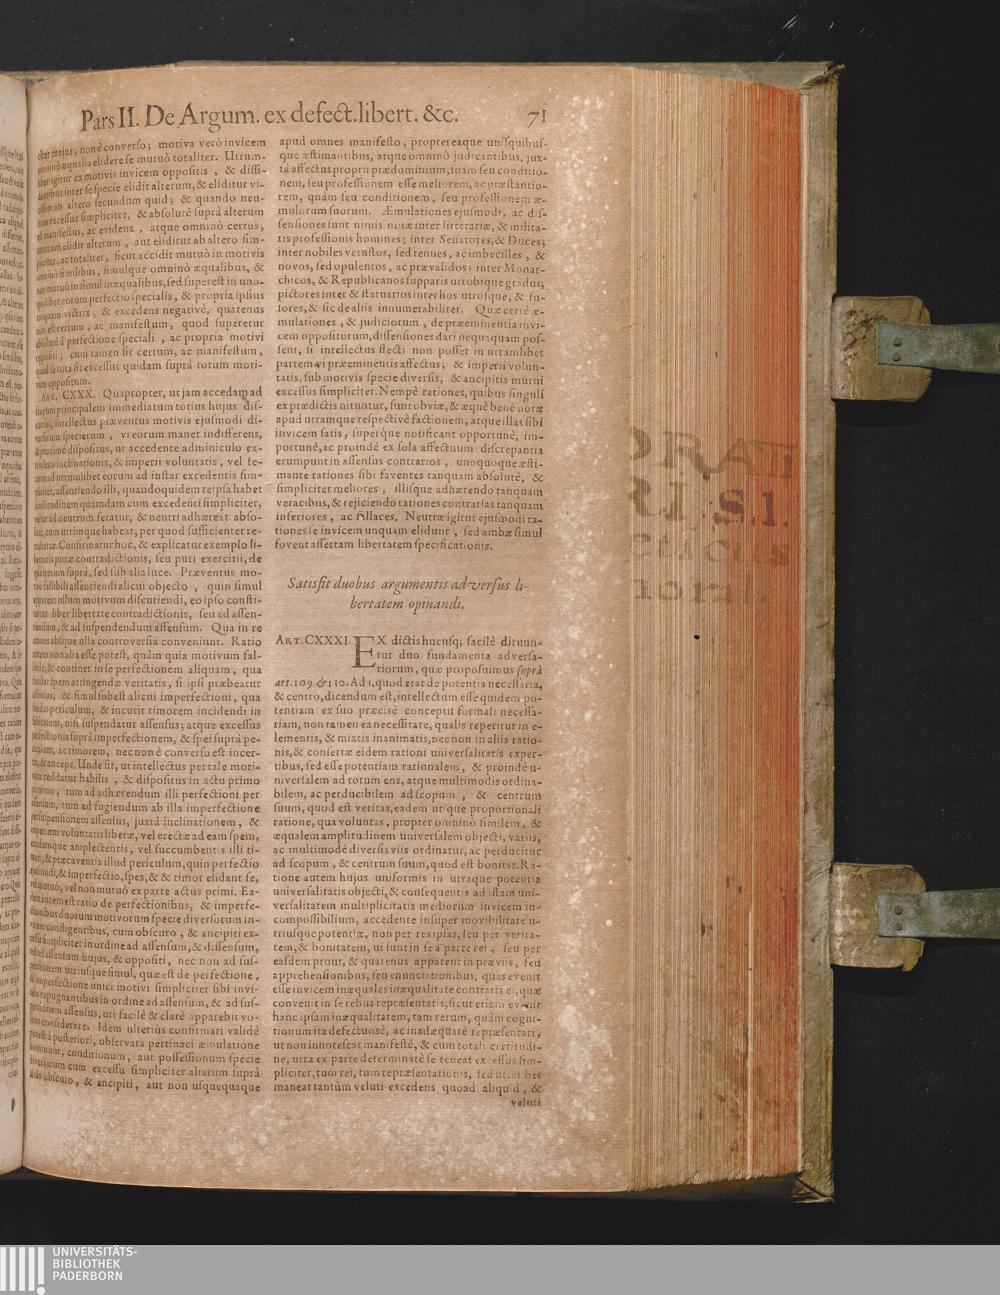 Pars II. De Argum. ex defect. libert. &c. 71
majus, non è converso; motiva verò invicem
omninò æqualia elidere se mutuò totaliter. Utrum-
libet igitur ex motivis invicem oppositis, & dissi-
dentibus inter se specie elidit alterum, & eliditur vi-
ab altero secundum quid; & quando neu-
excessus simpliciter, & absolutè suprà alterum
manifestus, ac evidens, atque omninò certus,
neutrum elidit alterum, aut eliditur ab altero sim-
pliciter, ac totaliter, sicut accidit mutuò in motivis
omninò similibus, simulque omninò æqualibus, &
mutuò in simul inæqualibus, sed superest in uno-
quolibet eorum perfectio specialis, & propria ipsius
tanquam victrix, & excedens negativè, quatenus
non est certum, ac manifestum, quod superetur
à perfectione speciali, ac propria motivi
oppositi, cùm tamen sit certum, ac manifestum,
quod se tota sit excessus quidam suprà totum moti-
vum oppositum.
ART. CXXX. Quapropter, ut jam accedam ad
scopum principalem immediatum totius hujus dis-
cursus, intellectus præventus motivis ejusmodi di-
versarum specierum, vi eorum manet indifferens,
& proximè dispositus, ut accedente adminiculo ex-
inclinationis, & imperii voluntatis, vel fe-
ratur ad utrumlibet eorum ad instar excedentis sim-
pliciter, assentiendo illi, quandoquidem reipsa habet
similitudinem quamdam cum excedenti simpliciter,
velut ad neutrum feratur, & neutri adhæreat abso-
lutè, cum utrimque habeat, per quod sufficienter re-
trahatur. Confirmatur hoc, & explicatur exemplo li-
bertatis puræ contradictionis, seu puri exercitii, de
qua jam suprà, sed sub alia luce. Præventus mo-
tivo fallibili assentiendi alicui objecto, quin simul
appareat ullum motivum discutiendi, eo ipso consti-
tuitur liber libertate contradictionis, seu ad assen-
tiendum, & ad suspendendum assensum. Qua in re
omnes absque ulla controversia conveniunt. Ratio
autem non alia esse potest, quàm quia motivum fal-
libile, & continet in se perfectionem aliquam, qua
fundat spem attingendæ veritatis, si ipsi præbeatur
assensus, & simul subest alicui imperfectioni, qua
fundat periculum, & incutit timorem incidendi in
falsitatem, nisi suspendatur assensus; atque excessus
perfectionis suprà imperfectionem, & spei suprà pe-
riculum, ac timorem, nec non è converso est incer-
tus, & anceps. Unde fit, ut intellectus per tale moti-
vum reddatur habilis, & dispositus in actu primo
proximo, tum ad adhærendum illi perfectioni per
assensum, tum ad fugiendum ab illa imperfectione
per suspensionem assensus, juxtà inclinationem, &
imperium voluntatis liberæ, vel erectæ ad eam spem,
eandemque amplectentis, vel succumbentis illi ti-
mori, & præcaventis illud periculum, quin perfectio
ejusmodi, & imperfectio, spes, & & timor elidant se,
vel mutuò, vel non mutuò ex parte actus primi. Ea-
dem autem est ratio de perfectionibus, & imperfe-
ctionibus duorum motivorum specie diversorum in-
vicem confligentibus, cum obscuro, & ancipiti ex-
cessu simpliciter in ordine ad assensum, & dissensum,
vel ad assensum hujus, & oppositi, nec non ad sus-
pensionem utriusque simul, quæ est de perfectione,
& imperfectione unici motivi simpliciter sibi invi-
cem repugnantibus in ordine ad assensum, & ad sus-
pensionem assensus, uti facilè & clarè apparebit vo-
lenti considerare. Idem ulteriùs confirmari validè
potest à posteriori, observata pertinaci æmulatione
hominum, conditionum, aut possessionum specie
diversarum cum excessu simpliciter aliarum suprà
alias obscuro, & ancipiti, aut non usquequaque
apud omnes manifesto, proptereaque unisquibus-
que æstimantibus, atque omninò judicantibus, jux-
tà affectus proprii prædominium, suam seu conditio-
nem, seu professionem esse meliorem, ac præstantio-
rem, quàm seu conditionem, seu professionem æ-
mulorum suorum. Æmulationes ejusmodi, ac dis-
sensiones sunt nimis notæ inter litterariæ, & milita-
ris professionis homines; inter Senatores, & Duces;
inter nobiles vetustos, sed tenues, ac imbecilles, &
novos, sed opulentos, ac prævalidos; inter Monar-
chicos, & Republicanos supparis utrobique gradus;
pictores inter & statuarios inter hos utrosque, & fu-
sores, & sic de aliis innumerabiliter. Quæ certè æ-
mulationes, & judiciorum, de præeminentia invi-
cem oppositorum, dissensiones dari nequaquam pos-
sent, si intellectus flecti non posset in utramlibet
partem vi præeminentis affectus; & imperii volun-
tatis, sub motivis specie diversis, & ancipitis mutui
excessus simpliciter. Nempè rationes, quibus singuli
ex prædictis nituntur, sunt obviæ, & æquè benè notæ
apud utramque respectivè factionem, atque illas sibi
invicem satis, superque notificant opportunè, im-
portunè, ac proindè ex sola affectuum discrepantia
erumpunt in assensus contrarios, unoquoque æsti-
mante rationes sibi faventes tanquam absolutè, &
simpliciter meliores, illisque adhærendo tanquam
veracibus, & rejiciendo rationes contrarias tanquam
inferiores, ac fallaces. Neutræ igitur ejusmodi ra-
tiones se invicem unquam elidunt, sed ambæ simul
fovent assertam libertatem specificationis.
Satisfit duobus argumentis adversus li-
bertatem opinandi.
ART. CXXXI. EX dictis hucusq; facilè diruun-
tur duo fundamenta adversa-
riorum, quæ proposuimus suprà
art. 109 & 110. Ad 1. quod erat de potentia necessaria,
& centro, dicendum est, intellectum esse quidem po-
tentiam ex suo præcisè conceptu formali necessa-
riam, non tamen ea necessitate, qualis reperitur in e-
lementis, & mixtis inanimatis, nec non in aliis ratio-
nis, & consertæ eidem rationi universalitatis exper-
tibus, sed esse potentiam rationalem, & proindè u-
niversalem ad totum ens, atque multimodis ordina-
bilem, ac perducibilem ad scopum, & centrum
suum, quod est veritas, eadem utique proportionali
ratione, qua voluntas, propter omninò similem, &
æqualem amplitudinem universalem objecti, variis,
ac multimodè diversis viis ordinatur, ac perducitur
ad scopum, & centrum suum, quod est bonitas. Ra-
tione autem hujus uniformis in utraque potentia
universalitatis objecti, & consequentis ad istam uni-
versalitatem multiplicitatis mediorum invicem in-
compossibilium, accedente insuper movibilitate u-
triusque potentiæ, non per res ipsas, seu per verita-
tem, & bonitatem, ut sunt in se à parte rei, seu per
easdem prout, & quatenus apparent in præviis, seu
apprehensionibus, seu enunciationibus, quas evenit
esse invicem inæquales inæqualitate contraria ei, quæ
convenit in se rebus repræsentatis, sicut etiam evenit
hanc ipsam inæqualitatem, tam rerum, quàm cogni-
tionum ita defectuosè, ac inadæquatè repræsentari,
ut non innotescat manifestè, & cum totali certitudi-
ne, utra ex parte determinatè se teneat excessus sim-
pliciter, tum rei, tum repræsentationis, sed utrai hec
maneat tantùm veluti excedens quoad aliquid, &
veluti
S. I.
UNIVERSITÄTS-
BIBLIOTHEK
PADERBORN